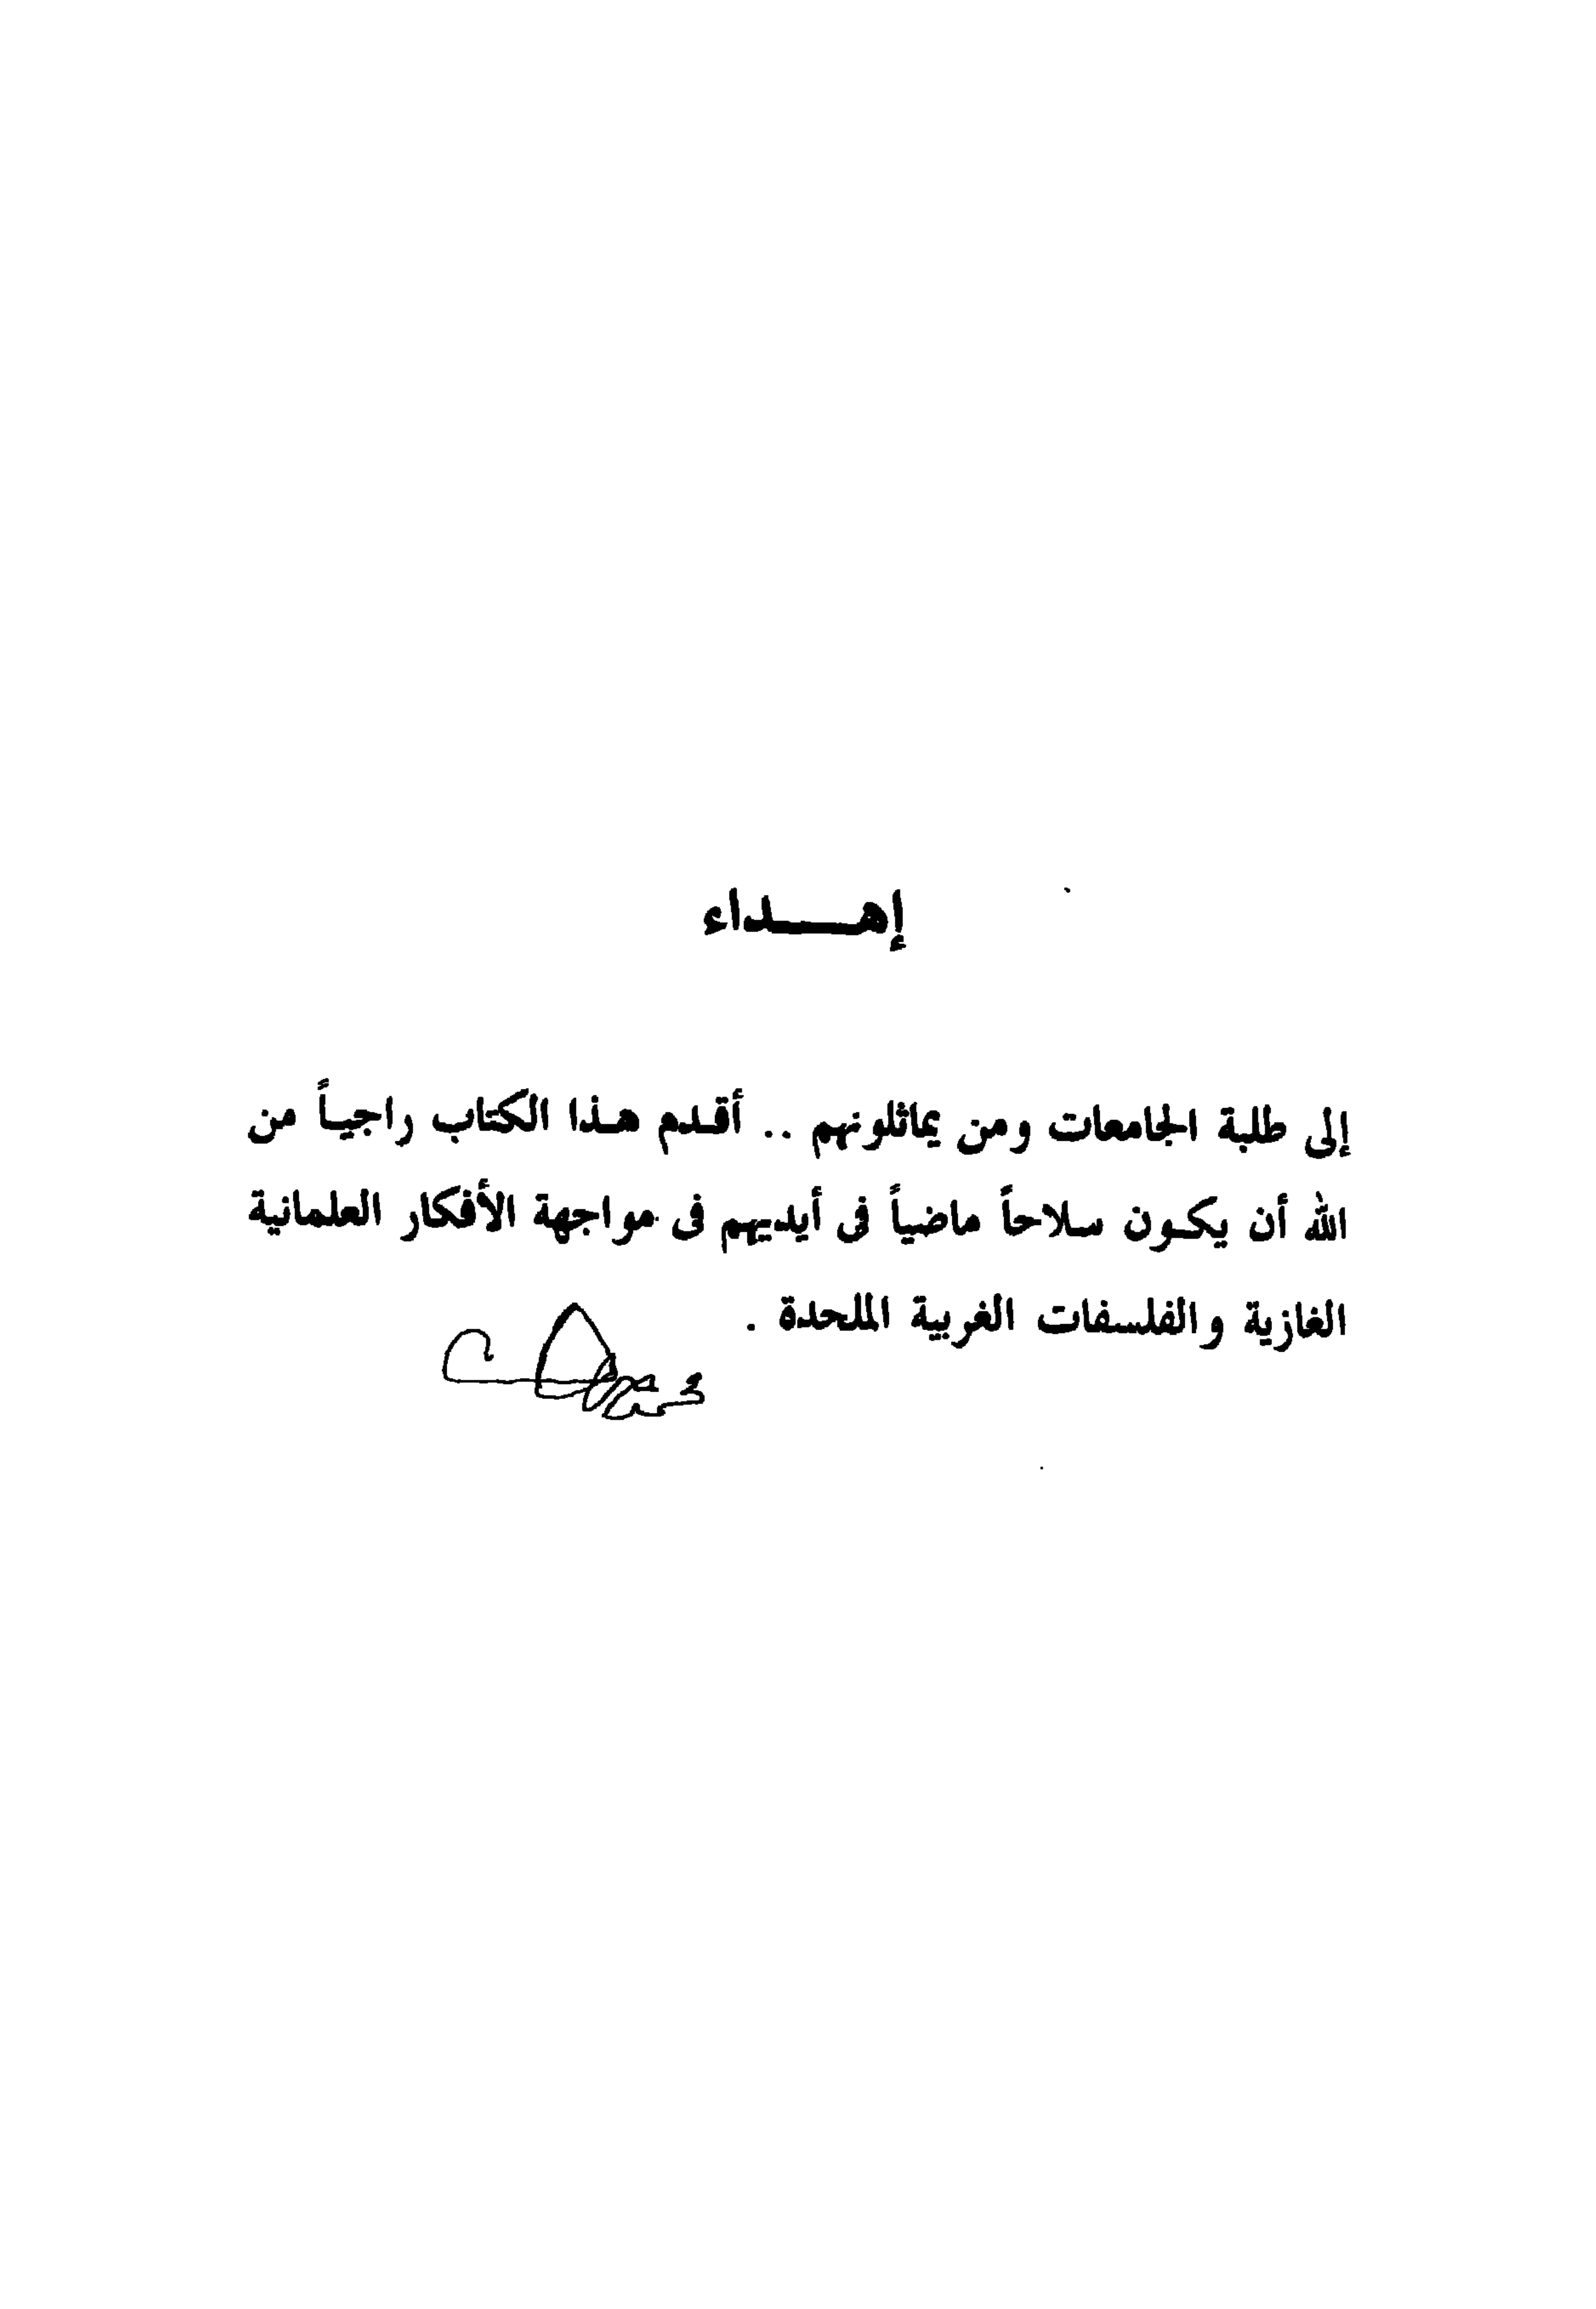 إهـــداء
إلى طلبة الجامعات ومن يماثلونهم .. أقدم هذا الكتاب راجياً من
الله أن يكون سلاحاً ماضياً فى أيديهم فى مواجهة الأفكار العلمانية
الغازية والفلسفات الغربية الملحدة .
محمد